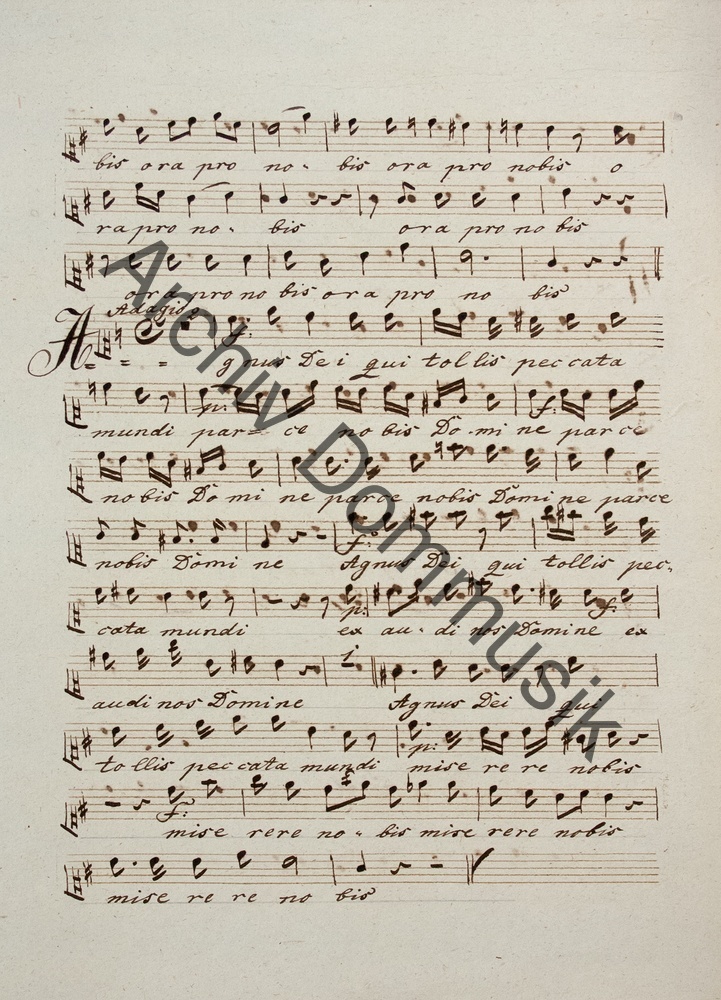 bis ora pro no - bis ora pro nobis o
ra pro no - bis ora pro nobis
ora pro no bis ora pro no bis
Adagio
f:
A - - - gnus Dei qui tollis peccata
p: f:
mundi par - ce no bis Do mi ne parce
nobis Do mi ne parce nobis Domi ne parce
f:
nobis Domi ne Agnus Dei qui tollis pec-
p: f:
cata mundi ex au - di nos Domine ex
1.
audi nos Domine Agnus Dei qui
p:
tollis peccata mundi mise re re nobis
f:
mise rere no - bis mise rere nobis
mise re re no bis
Archiv Dommusik